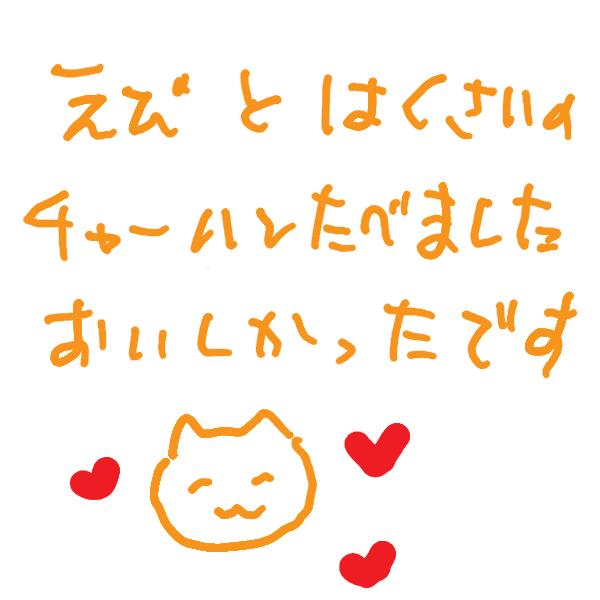 えびとはくさいの
チャーハンたべました
おいしかったです